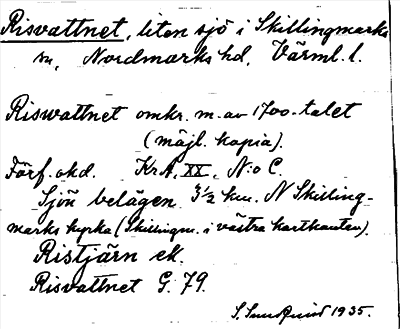 Risvattnet, liten sjö i Skillingmarks
sn, Nordmarks hd, Värml. l.
Riswattnet omkr. m. av 1700-talet
(möjl. kopia).
Förf. okd. Kr. A, XX, N:o C.
Sjön belägen 3½ km. N Skilling-
marks kyrka (Skillingm. i västra kartkanten).
Ristjärn ek.
Risvattnet G. 79.
1935.